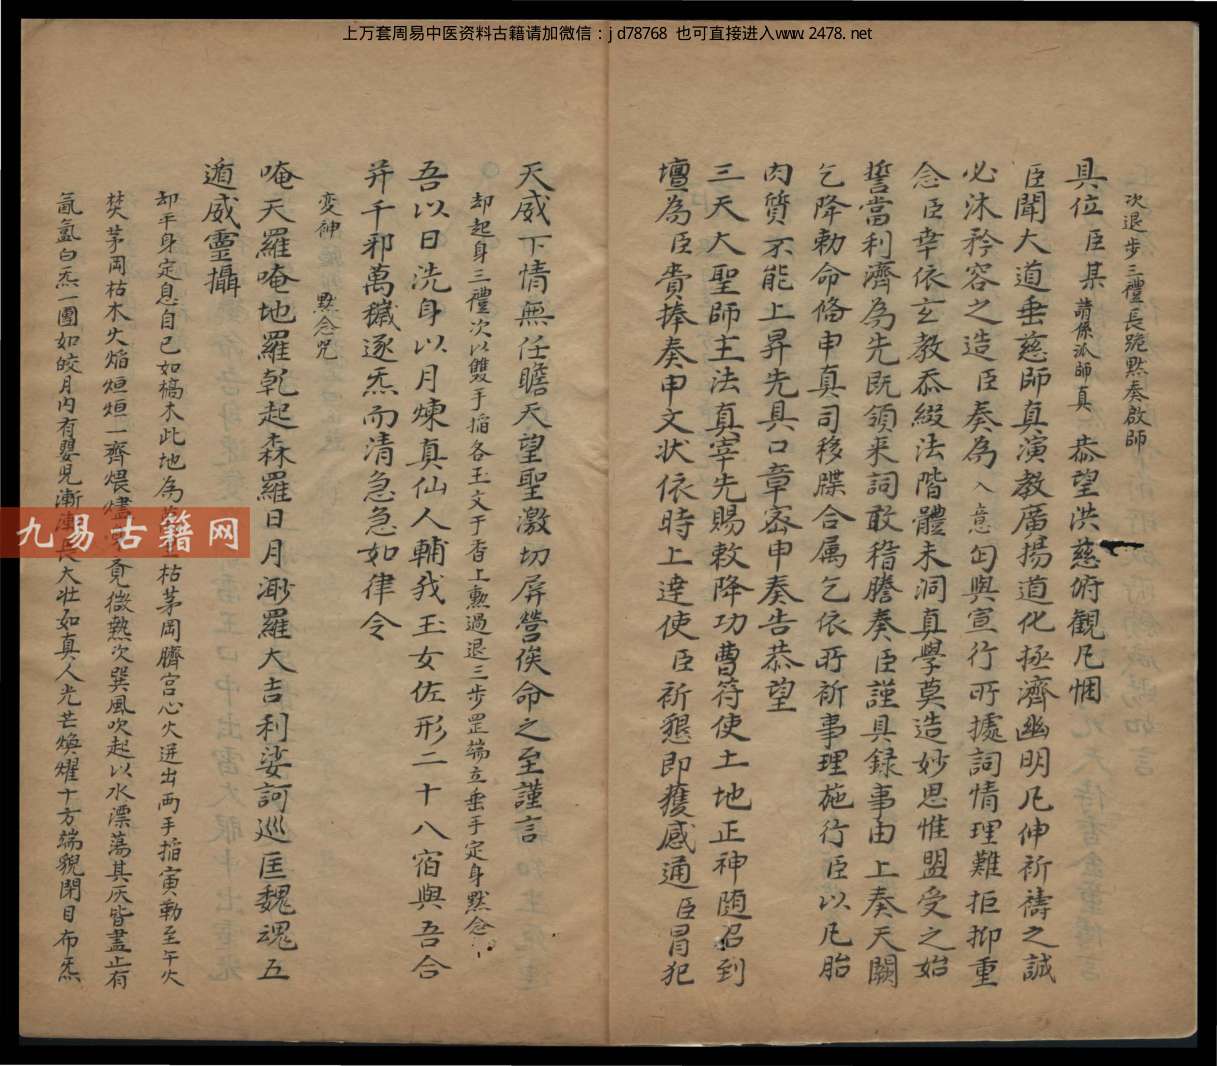 上万套周易中医资料古籍请加微信：jd78768 也可直接进入www.2478.net
次退步三禮長跪默奏啟師
具位臣某 請係派師真 恭望洪慈俯観凡悃
臣聞大道垂慈師真演教廣揚道化拯濟幽明凡伸祈禱之誠
必沐矜容之造臣奏為 入意 匄與宣行所據詞情理難拒抑重
念臣幸依玄教忝綴法階體未洞真學莫造妙思惟盟受之始
誓當利濟為先既領来詞敢稽謄奏臣謹具録事由上奏天闕
乞降勅命條申真司移牒合属乞依所祈事理施行臣以凡胎
肉質不能上昇先具口章密申奏告恭望
三天大聖師主法真宰先賜敕降功曹符使土地正神随召到
壇為臣賫捧奏申文状依時上達使臣祈懇即獲感通臣冒犯
天威下情無任瞻天望聖激切屏營俟命之至謹言
却起身三禮次以雙手掐各玉文于香上熏過退三步罡端立垂手定身默念
吾以日洗身以月煉真仙人輔我玉女佐形二十八宿與吾合
并千邪萬穢逐炁而清急急如律令
変神 默念咒
唵天羅唵地羅乾起森羅日月渺羅大吉利娑訶巡匡魏魂五
遁威靈攝
却平身定息自己如槁木此地為 枯茅岡臍宫心火迸出両手掐寅勒至午火
焚茅岡枯木火焰烜烜一齊煨燼 覓微熱次巽風吹起以水漂蕩其灰皆盡止有
氤氳白炁一團如皎月内有嬰児漸漸長大壮如真人光芒煥耀十方端貌閉目布炁
九易古籍网